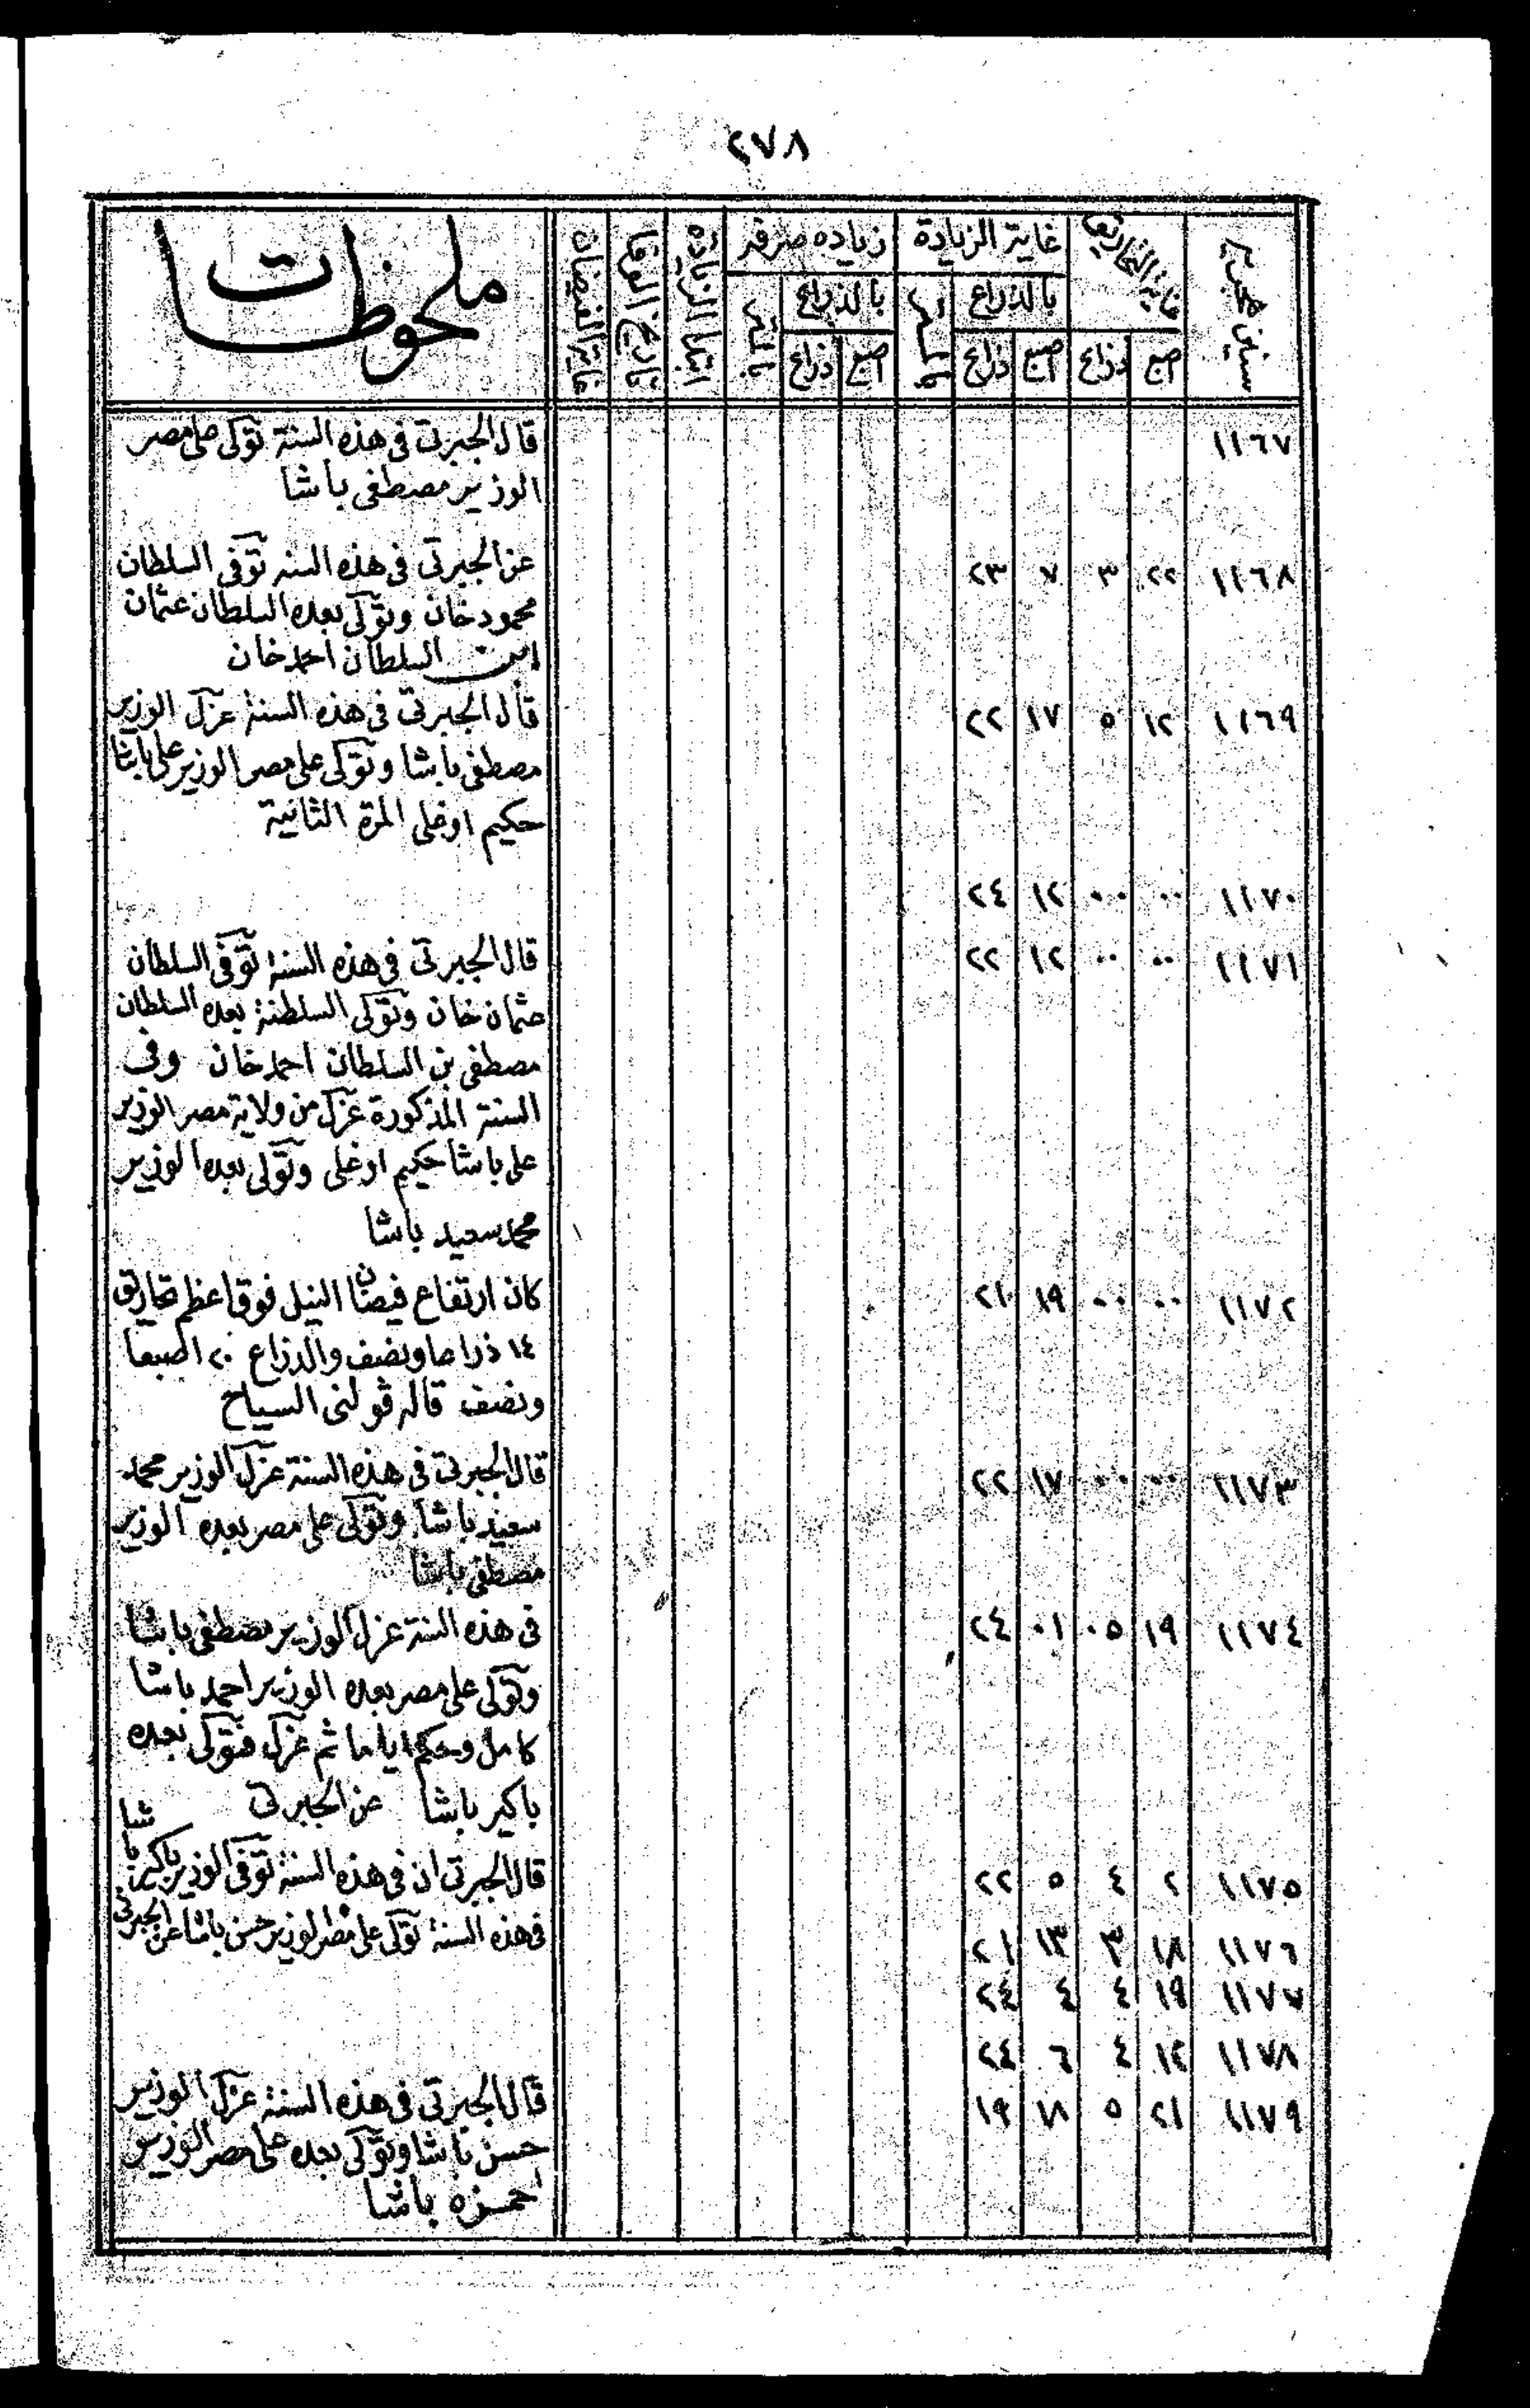 ٢٧٨
سنين هجريه
غاية التحاريق
غاية الزيادة
زياده صرفه
ابتدا الزياده
تاريخ الوفا
غاية الفيضان
ملحوظات
بالذراع
بالمتر
بالذراع
بالمتر
اصبع ذراع اصبع ذراع اصبع ذراع
١١٦٧
قال الجبرتى فى هذه السنة تولى على مصر
الوزير مصطفى باشا
١١٦٨ ٢٢ ٣ ٧ ٢٣
عن الجبرتى فى هذه السنه توفى السلطان
محمود خان وتولى بعده السلطان عثمان
ابن السلطان احمد خان
١١٦٩ ١٢ ٥ ١٧ ٢٢
قال الجبرتى فى هذه السنة عزل الوزير
مصطفى باشا وتولى على مصر الوزير على باشا
حكيم اوغلى المرة الثانية
١١٧٠ ٠٠ ٠٠ ١٢ ٢٤
١١٧١ ٠٠ ٠٠ ١٢ ٢٢
قال الجبرتى فى هذه السنة توفى السلطان
عثمان خان وتولى السلطنة بعده السلطان
مصطفى بن السلطان احمد خان وفى
السنة المذكورة عزل من ولاية مصر الوزير
على باشا حكيم اوغلى وتولى بعده الوزير
محمد سعيد باشا
١١٧٢ ٠٠ ٠٠ ١٩ ٢١
كان ارتفاع فيضان النيل فوق اعظم تحاريق
١٤ ذراعا ونصف والذراع ٢٠ اصبعا
ونصف قاله ڤولنى السياح
١١٧٣ ٠٠ ٠٠ ١٧ ٢٢
قال الجبرتى فى هذه السنة عزل الوزير محمد
سعيد باشا وتولى على مصر بعده الوزير
مصطفى باشا
١١٧٤ ١٩ ٠٥ ٠١ ٢٤
فى هذه السنة عزل الوزير مصطفى باشا
وتولى على مصر بعده الوزير احمد باشا
كامل وحكم اياما ثم عزل فتولى بعده
باكير باشا عن الجبرتى
١١٧٥ ٢ ٤ ٥ ٢٢
قال الجبرتى ان فى هذه السنة توفى الوزير باكير باشا
١١٧٦ ١٨ ٣ ١٣ ٢١
فى هذه السنة تولى على مصر الوزير حسن باشا عن الجبرتى
١١٧٧ ١٩ ٤ ٤ ٢٤
١١٧٨ ١٢ ٤ ٦ ٢٤
١١٧٩ ٢١ ٥ ١٨ ١٩
قال الجبرتى فى هذه السنة عزل الوزير
حسن باشا وتولى بعده على مصر الوزير
حمزه باشا